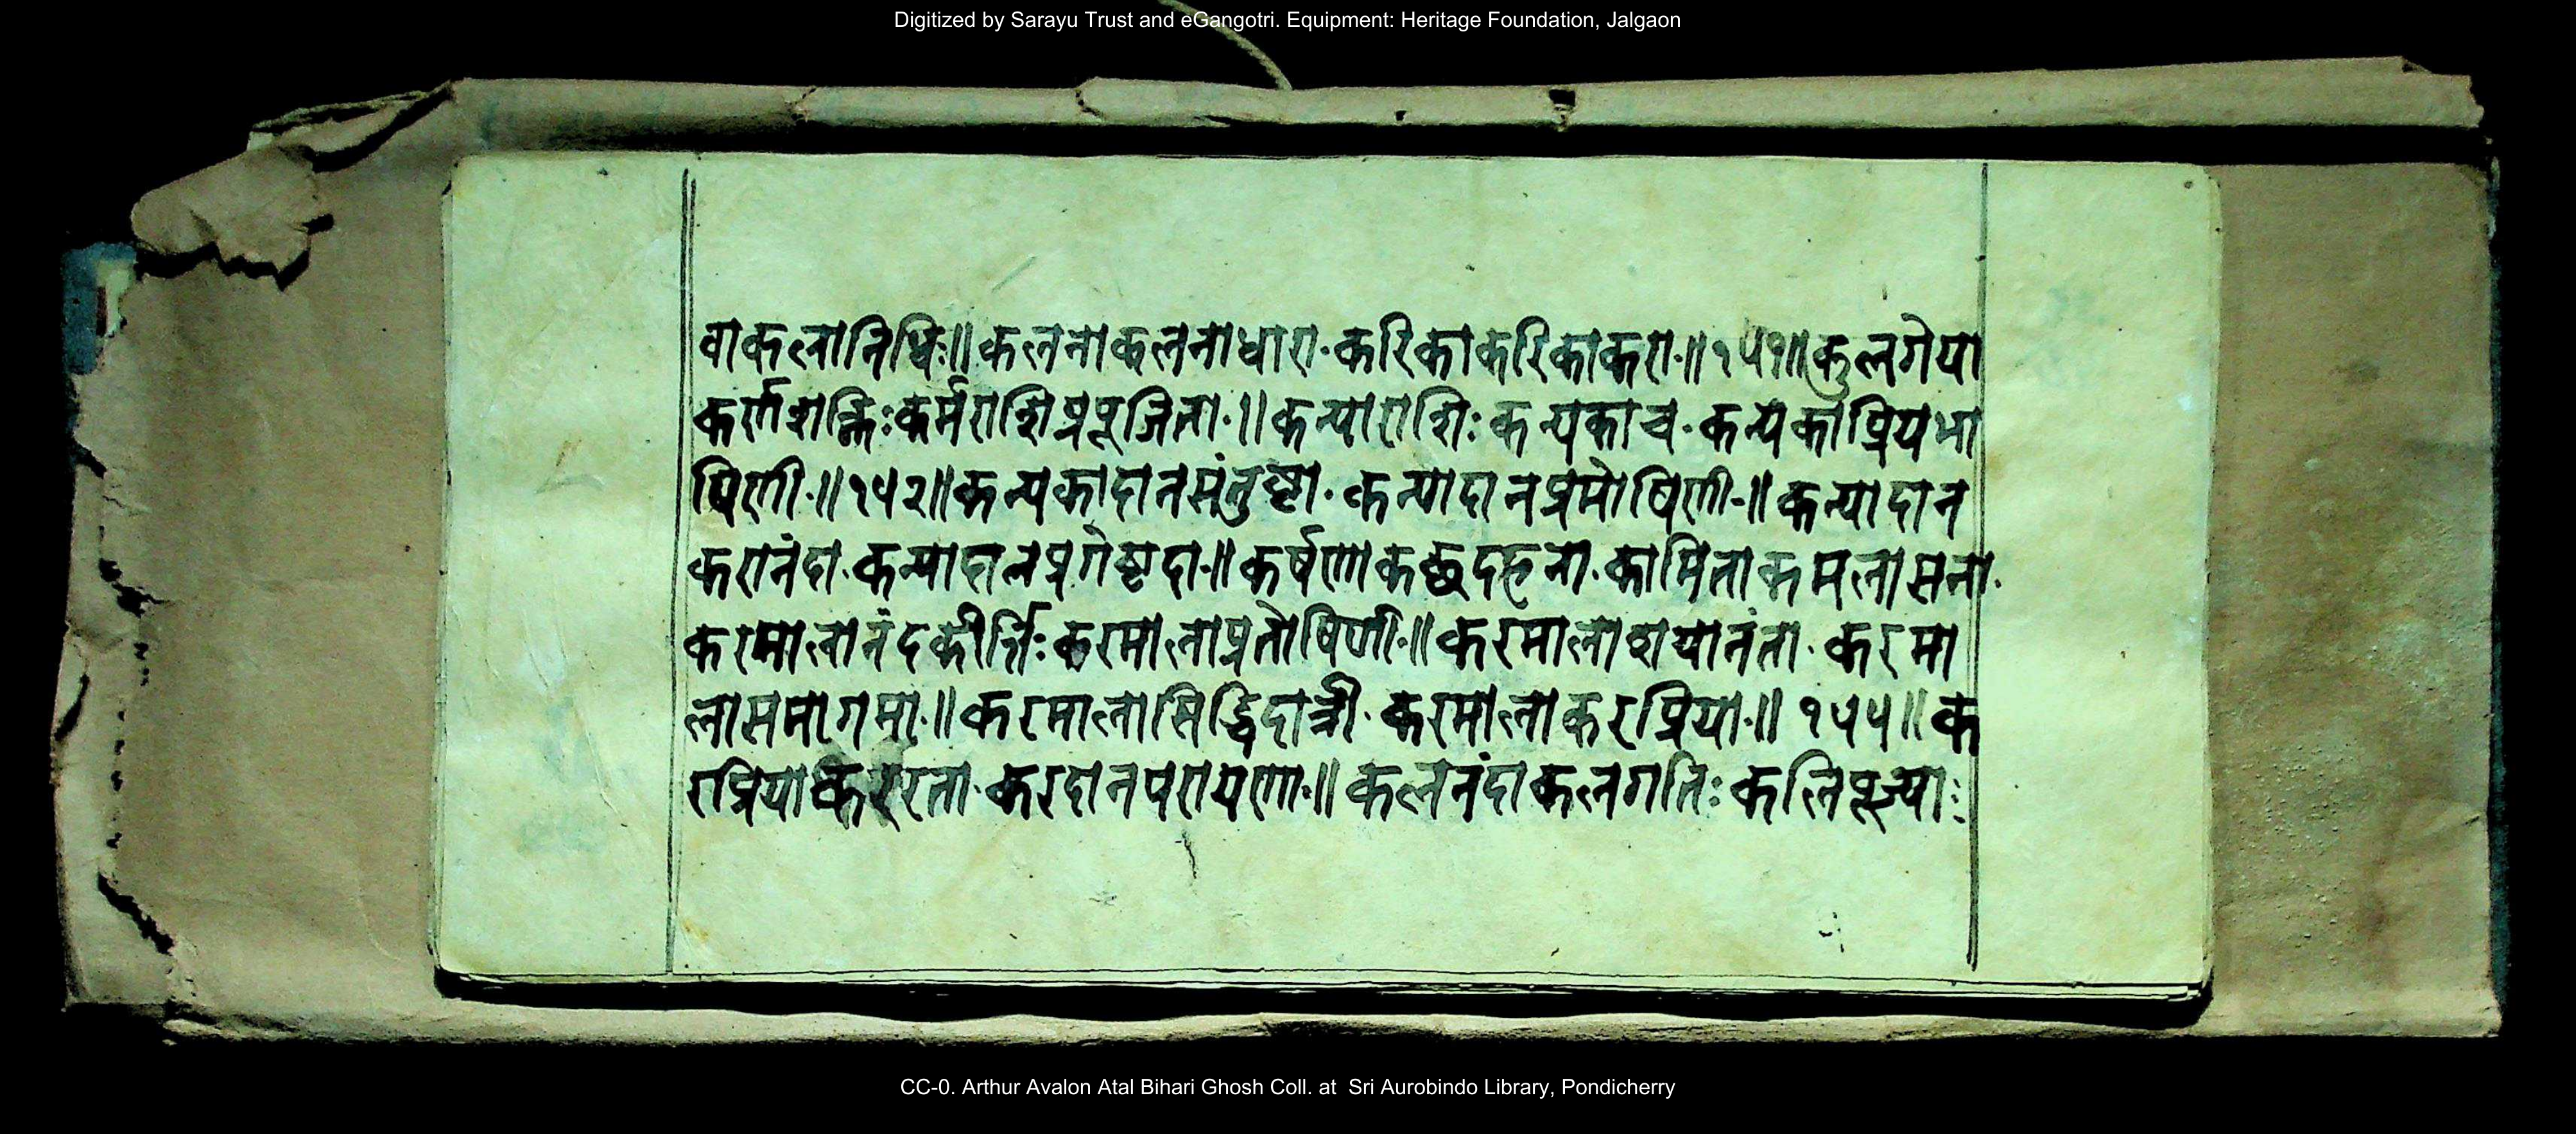 Digitized by Sarayu Trust and eGangotri. Equipment: Heritage Foundation, Jalgaon
वाकलानिधिः॥कलनाकलनाधारा·करिकाकरिकाकरा·॥१५१॥कुलगेया
कर्णशक्तिःकर्मराशिप्रपूजिता·॥कन्याराशिः कन्यकाच·कन्यकाप्रियभा
षिणी·॥१५२॥कन्यकादानसंतुष्टा·कन्यादानप्रमोषिणी·॥कन्यादान
करानंदा·कन्यादानप्रगेष्टदा·॥कर्षणाकक्षदहना·कामिताकमलासना·
करमालानंदकीर्त्तिःकरमालाप्रतोषिणी·॥करमालाशयानंता·करमा
लासमागमा·॥करमालासिद्धिदात्री·करमालाकरप्रिया·॥१५५॥क
रप्रिया रता·करदानपरायणा·॥कलनंदाकलगतिःकलिपूज्याः
CC-0. Arthur Avalon Atal Bihari Ghosh Coll. at Sri Aurobindo Library, Pondicherry